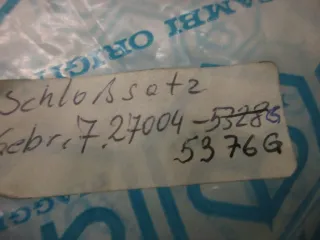 CAMBI ORIGI
Schloßsatz
Gebr. 7.27004 - 5328G
5376G
AGGI